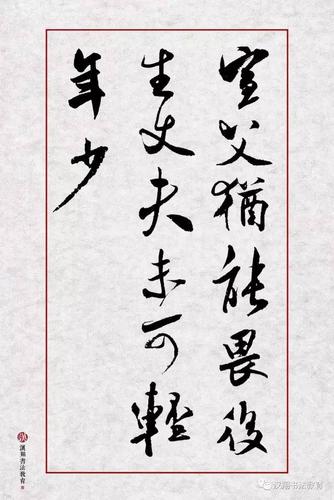 宣父猶能畏後
生丈夫未可輕
年少
漢翔書法教育
汉翔书法教育